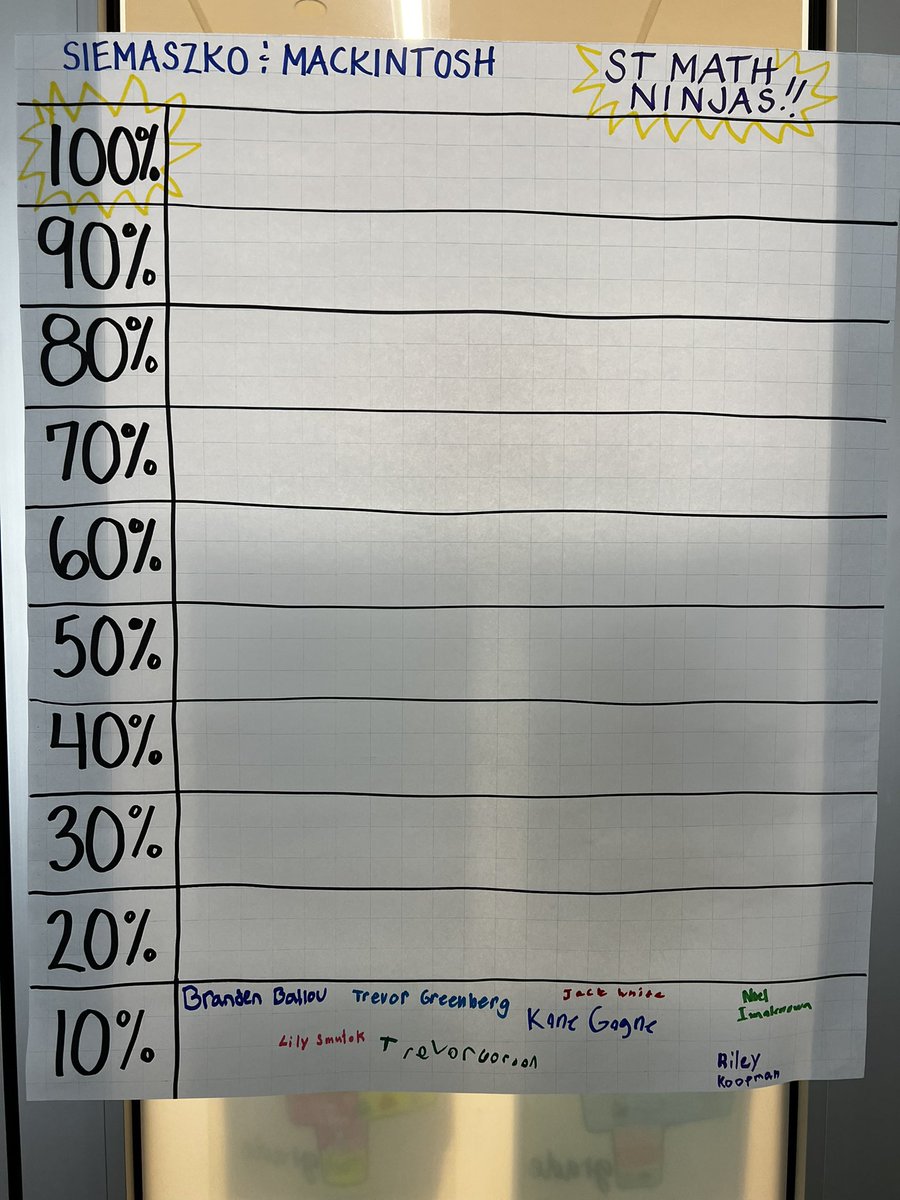 SIEMASZKO & MACKINTOSH
ST MATH
NINJAS!!
100%
90%
80%
70%
60%
50%
40%
30%
20%
10%
Branden Ballou Trevor Greenberg Jack White
Kane Gagne
Noel
Lily Smulok Trevor
Riley
Koopman